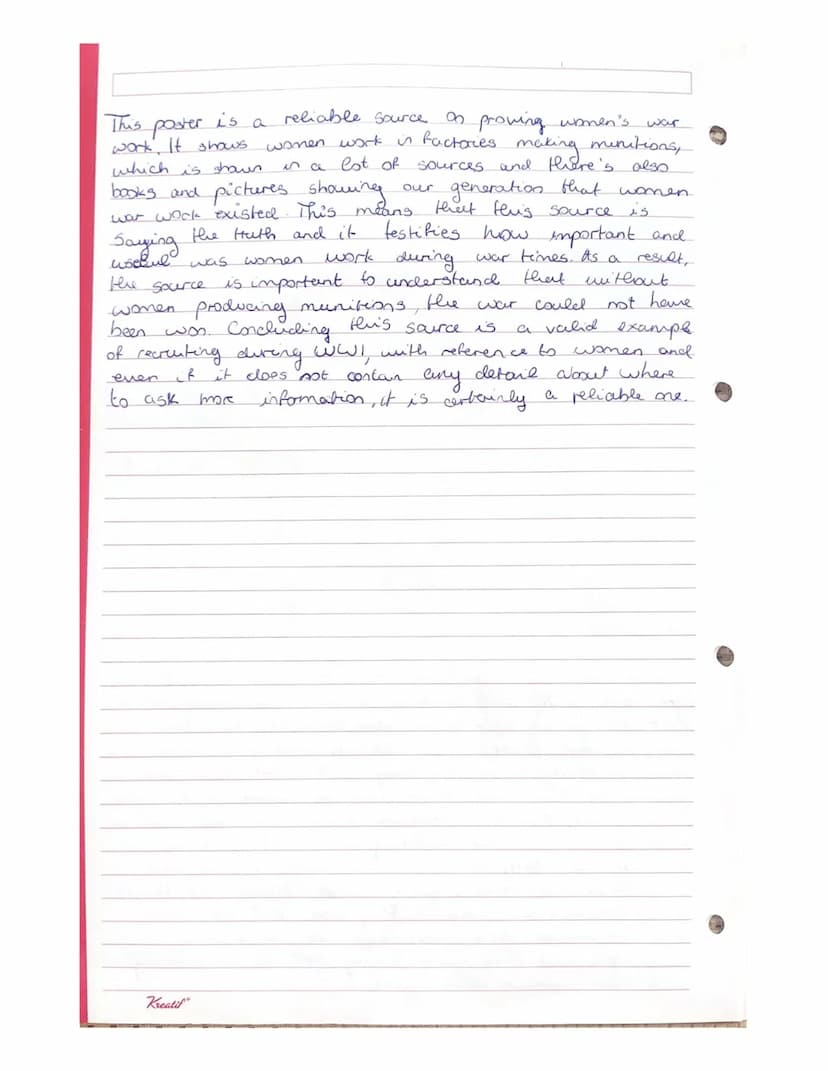 This poster is a reliable source on proving women's war
work. It shows women work in factories making munitions,
which is shown in a lot of sources and there's also
books and pictures showing our generation that women
war work existed. This means that this source is
saying the truth and it testifies how important and
useful was women work during war times. As a result,
the source is important to understand that without
women producing munitions, the war could not have
been won. Concluding this source is a valid example
of recruiting during WW1, with reference to women and
even if it does not contain any detail about where
to ask more information, it is certainly a reliable one.
Kreatif